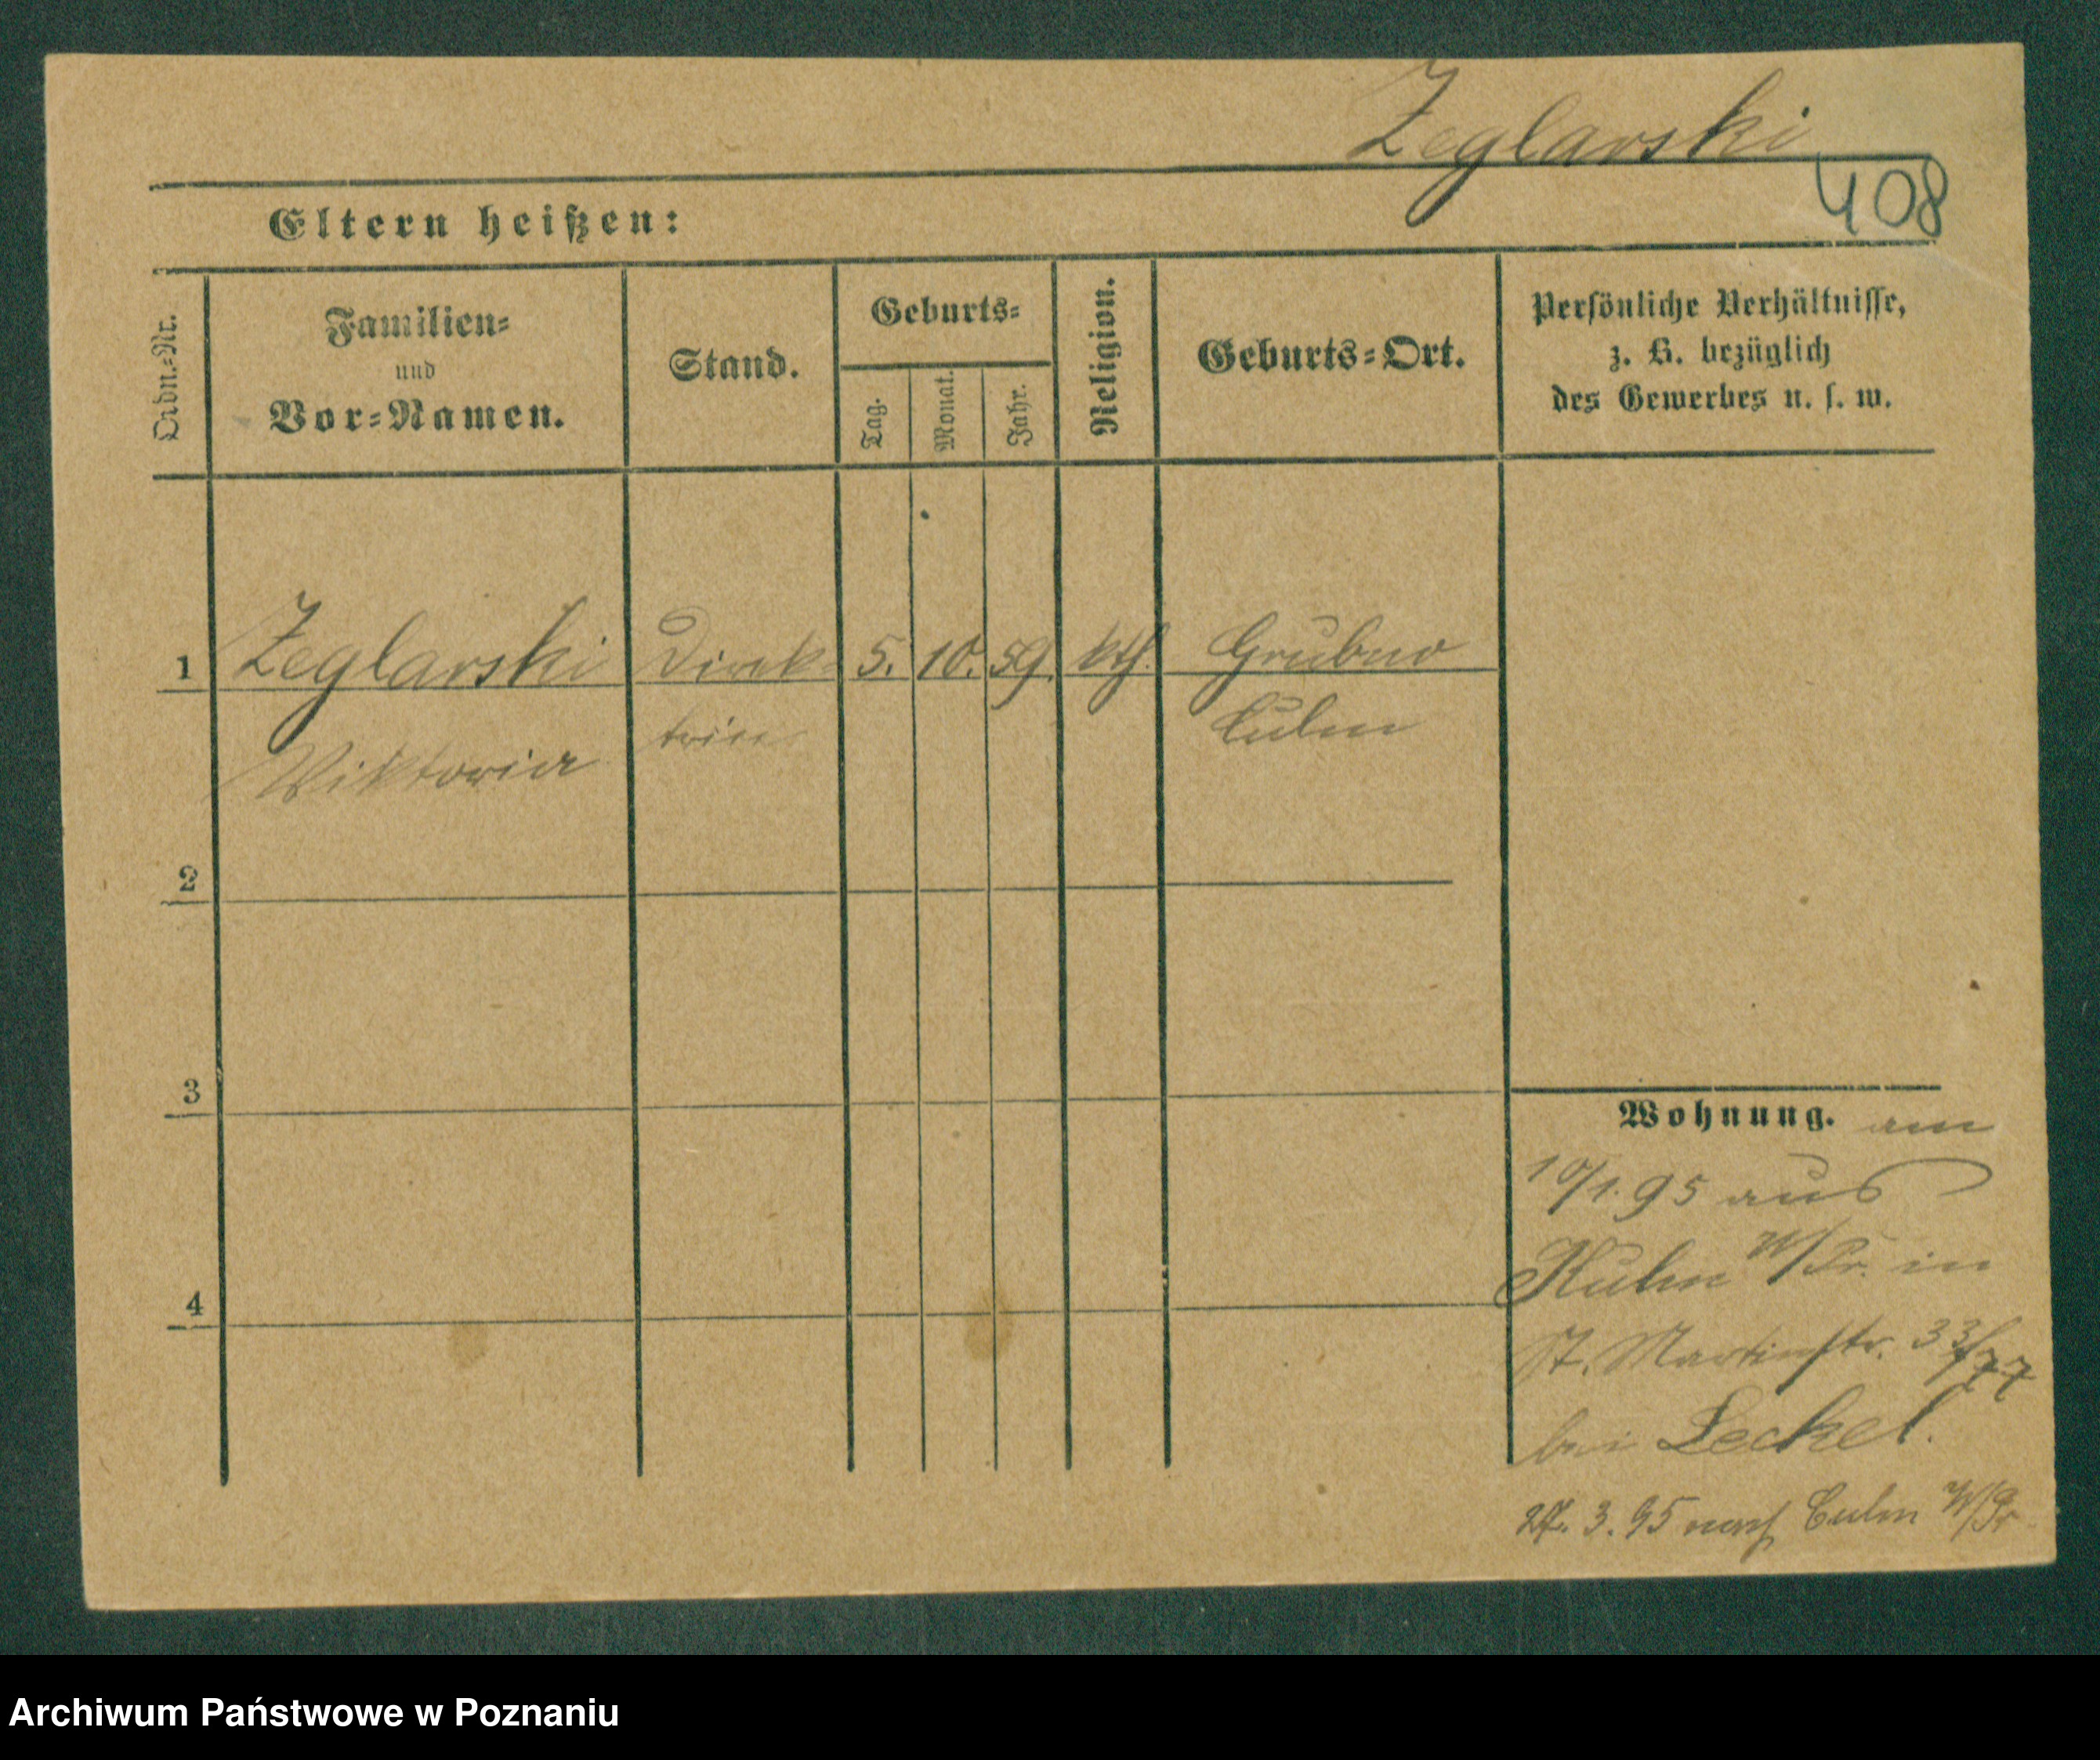 Zeglarski
408
Eltern heißen:
Ordn.=Nr.
Familien=
und
Vor=Namen.
Stand.
Geburts=
Tag.
Monat.
Jahr.
Religion.
Geburts=Ort.
Persönliche Verhältnisse,
z. B. bezüglich
des Gewerbes u. s. w.
1 Zeglarski Direk- 5. 10. 59. kth. Grubno
Viktoria trin Culm
2
3
4
Wohnung. am
10/1.95 aus
Kulm W/Pr. in
St. Martinstr. 33/
bei Leckel.
27. 3. 95 nach Culm W/Pr
Archiwum Państwowe w Poznaniu